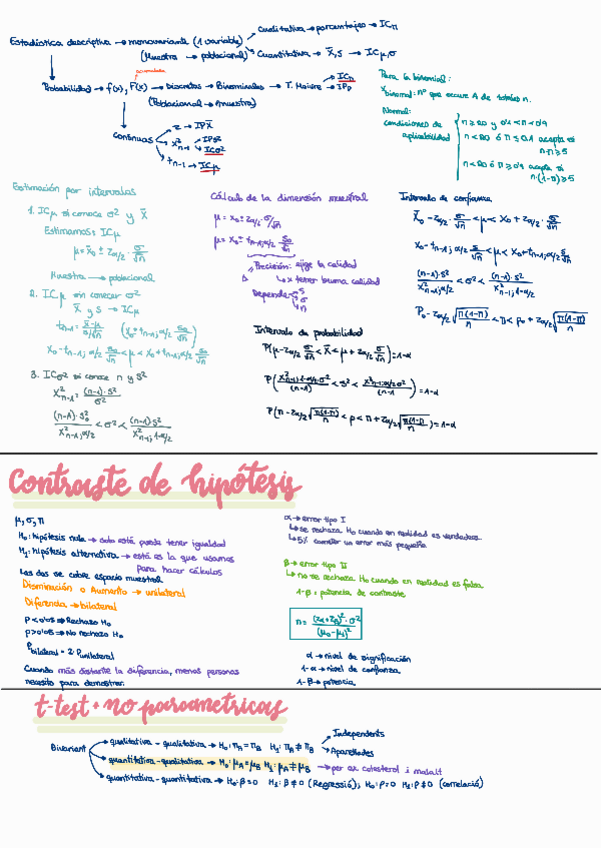 Estadística descriptiva → monovariante (1 variable)
Cualitativa → porcentajes → ICπ
(Muestra → poblacional)
Cuantitativa → X̄, s → ICμ,σ
acumulada
Probabilidad → f(x), F(x) → Discretas → Binominales → T. Moivre → ICπ
→ IPp
(Poblacional → muestra)
Continuas
z → IPX̄
X²n-1 → IPS²
→ ICσ²
tn-1 → ICμ
Para la binomial:
Xbinomial: nº que ocurre A de totales n.
Normal:
condiciones de aplicabilidad
Estimación por intervalos
1. ICμ si conoce σ² y X̄
Estimamos: ICμ
μ = x̄0 ± zα/2 · σ/√n
Muestra → poblacional
2. ICμ sin conocer σ²
X̄ y s → ICμ
3. ICσ² si conoce n y s²
X²n-1 = (n-1)·s²/σ²
Cálculo de la dimensión muestral
μ = x0 ± zα/2 σ/√n
μ = x0 ± tn-1,α/2 s0/√n
Precisión: exige la calidad
↳ x tener buena calidad
Depende: s
n
Intervalo de probabilidad
P(μ - zα/2 σ/√n < X̄ < μ + zα/2 σ/√n) = 1-α
P(π - zα/2 √π(1-π)/n < p < π + zα/2 √π(1-π)/n) = 1-α
Intervalo de confianza
X̄0 - zα/2 · σ/√n < μ < X0 + zα/2 · σ/√n
X0 - tn-1; α/2 s/√n < μ < X0 + tn-1; α/2 s/√n
(n-1)·s²/X²n-1; α/2 < σ² < (n-1)·s²/X²n-1; 1-α/2
Contraste de hipótesis
μ, σ, π
H0: hipótesis nula → solo está puede tener igualdad
H1: hipótesis alternativa → está es la que usamos
para hacer cálculos
Las dos se cobre espacio muestral
Disminución o Aumento → unilateral
Diferencia → bilateral
p < 0'05 ⇒ Rechazo H0
p > 0'05 ⇒ No rechazo H0
Pbilateral = 2·Punilateral
Cuando más distante la diferencia, menos personas
necesito para demostrar.
α → error tipo I
↳ se rechaza H0 cuando en realidad es verdadera.
↳ 5% cometer un error más pequeño
β → error tipo II
↳ no se rechaza H0 cuando en realidad es falsa
1-β = potencia de contraste
n = (zα+zβ)²·σ²/(μ0-μ1)²
α → nivel de significación
1-α → nivel de confianza
1-β → potencia
t-test + no parametricas
Bivariant
qualitativa - qualitativa → H0: πA = πB H1: πA ≠ πB
Independents
Aparellades
quantitativa - qualitativa → H0: μA = μB H1: μA ≠ μB → per ex colesterol i malalt
quantitativa - quantitativa → H0: β = 0 H1: β ≠ 0 (Regressió); H0: ρ = 0 H1: ρ ≠ 0 (correlació)